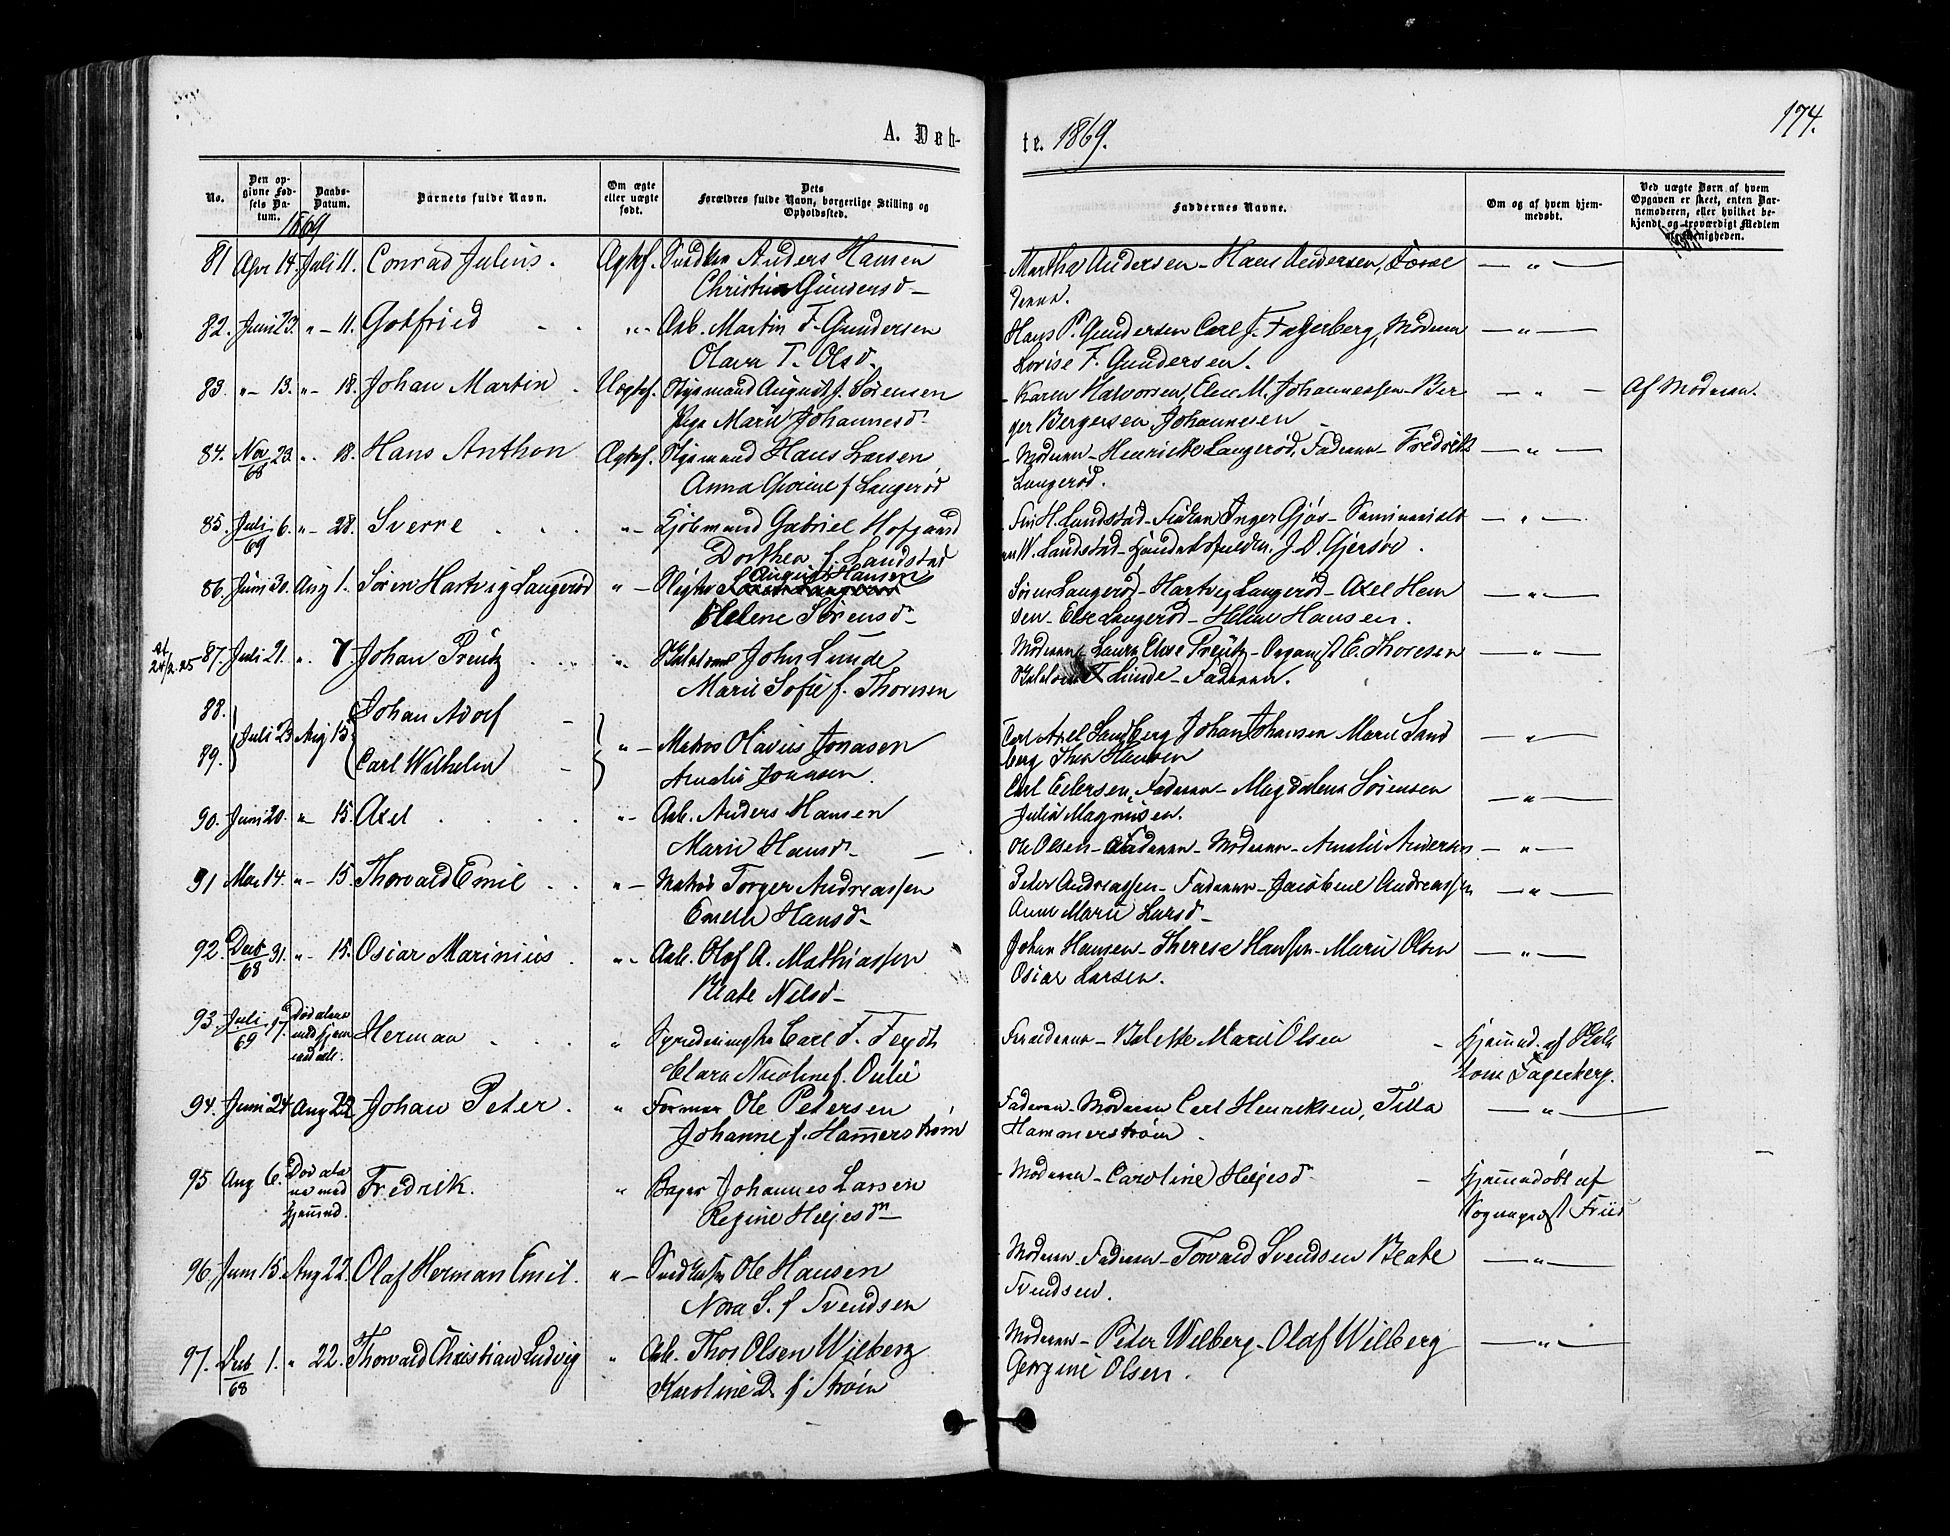 A. Døb-
te. 1869.
174.
No.
Den op-
givne Fød-
sels Da-
tum.
Daabs-
Datum.
Barnets fulde Navn.
Om ægte
eller uægte
født.
Dets
Forældres fulde Navn, borgerlige Stilling og
Opholdssted.
Faddernes Navne.
Om og af hvem hjem-
medøbt.
Ved uægte Børn af hvem
Opgaven er skeet, enten Bar-
nemoderen, eller hvilket be-
kjendt og troværdigt Medlem
af Menigheden.
1869
81 Apr 14. Juli 11. Conrad Julius. Ægtef. Anders Hansen
Christine Gundersd
Martha Andersen - Hans Andersen, Foræl
drene.
82. Juni 23. " - 11. Gotfried " - Arb. Martin F. Gundersen
Olava T. Olsd.
Hans P. Gundersen Carl J. Fagerberg, Moderen
Lovise F. Gundersen.
83. " - 13. " - 18. Johan Martin Uægtef. Ungmand August J. Sørensen
Pige Marie Johannesd.
Karen Halvorsen, Elen M. Johannessen - Bir
ger Bergersen, Johannesen
Af Moderen.
84. Nov 68 23. " - 18. Hans Anthon Ægtef. Hans Larsen
Anna f Langerød
Moderen - Henriette Langerød, Faderen - Fredrik
Langerød.
85. Juli 69 6. " - 28. Sverre " - Kjøbmand Gabriel Hofgaard
Dorthea f. Landstad
H. Landstad - Frøken Inger Gjøs - Seminarist
W. Landstad - J. D. Gjersøe.
86. Juni 30. Aug 1. Søren Hartvig Langerød " - August Hansen
Helene Sørensd
Søren Langerød - Hartvig Langerød - Axel Han
sen - Else Langerød - Helene Hansen.
at.
24/2.25
87. Juli 21. " 7 Johan Preutz " - John Lunde
Marie Sofie f. Thoresen
Moderen - Laura Preutz - Organist E. Thoresen
Lunde - Faderen.
88. Johan Adolf
Juli 23 Aug 15
89. Carl Wilhelm " - Matros Olavus Jonasen
Amalie Jonasen.
Carl Axel Sandberg Johan Johansen Marie Sand
berg Thea Hansen
Carl Eilersen, Faderen - Magdalena Sørensen
Julia Magnusen.
90. Juni 20. " - 15. Axel " - Arb. Anders Hansen
Marie Hansd.
Ole Olsen - Faderen - Moderen - Amalie Andersen
91 Mai 14. " - 15. Thorvald Emil " - Matros Torger Andreassen
Emelie Hansd
Peter Andreassen - Faderen - Jacobine Andreassen
Anne Marie Larsd
92. Decb 68 31. " - 15. Oscar Marinius " - Arb. Olof A. Mathiassen
Beate Nilsd
Johan Hansen - Therese Hanssen - Marie Olsen
Oscar Larsen.
93. Juli 69 17. Herman " Carl F. Feydt
Clara Nicoline f. Oulie
Forældrene - Valette Marie Olsen
Hjemmed. af
Fagerberg.
94. Juni 24 Aug 22 Johan Peter. " Former Ole Petersen
Johanne f. Hammerstrøm
Faderen - Moderen Carl Henriksen, Tilla
Hammerstrøm.
95 Aug 6. Fredrik. " Bager Johannes Larsen
Regine Heljesd
Moderen - Caroline Heljesd
Hjemmedøbt af
Sognepræst Friis
96. Juni 15. Aug 22. Olaf Herman Emil. " - Ole Hansen
Nora S. f Svendsen
Moderen - Faderen - Torvald Svendsen Beate
Svendsen.
97. Decb 68 1. " 22. Thorvald Christian Ludvig " Arb. Thor Olsen Wilberg
Karoline D. f Strøm
Moderen - Peter Wilberg - Olaf Wilberg
Georgine Olsen.